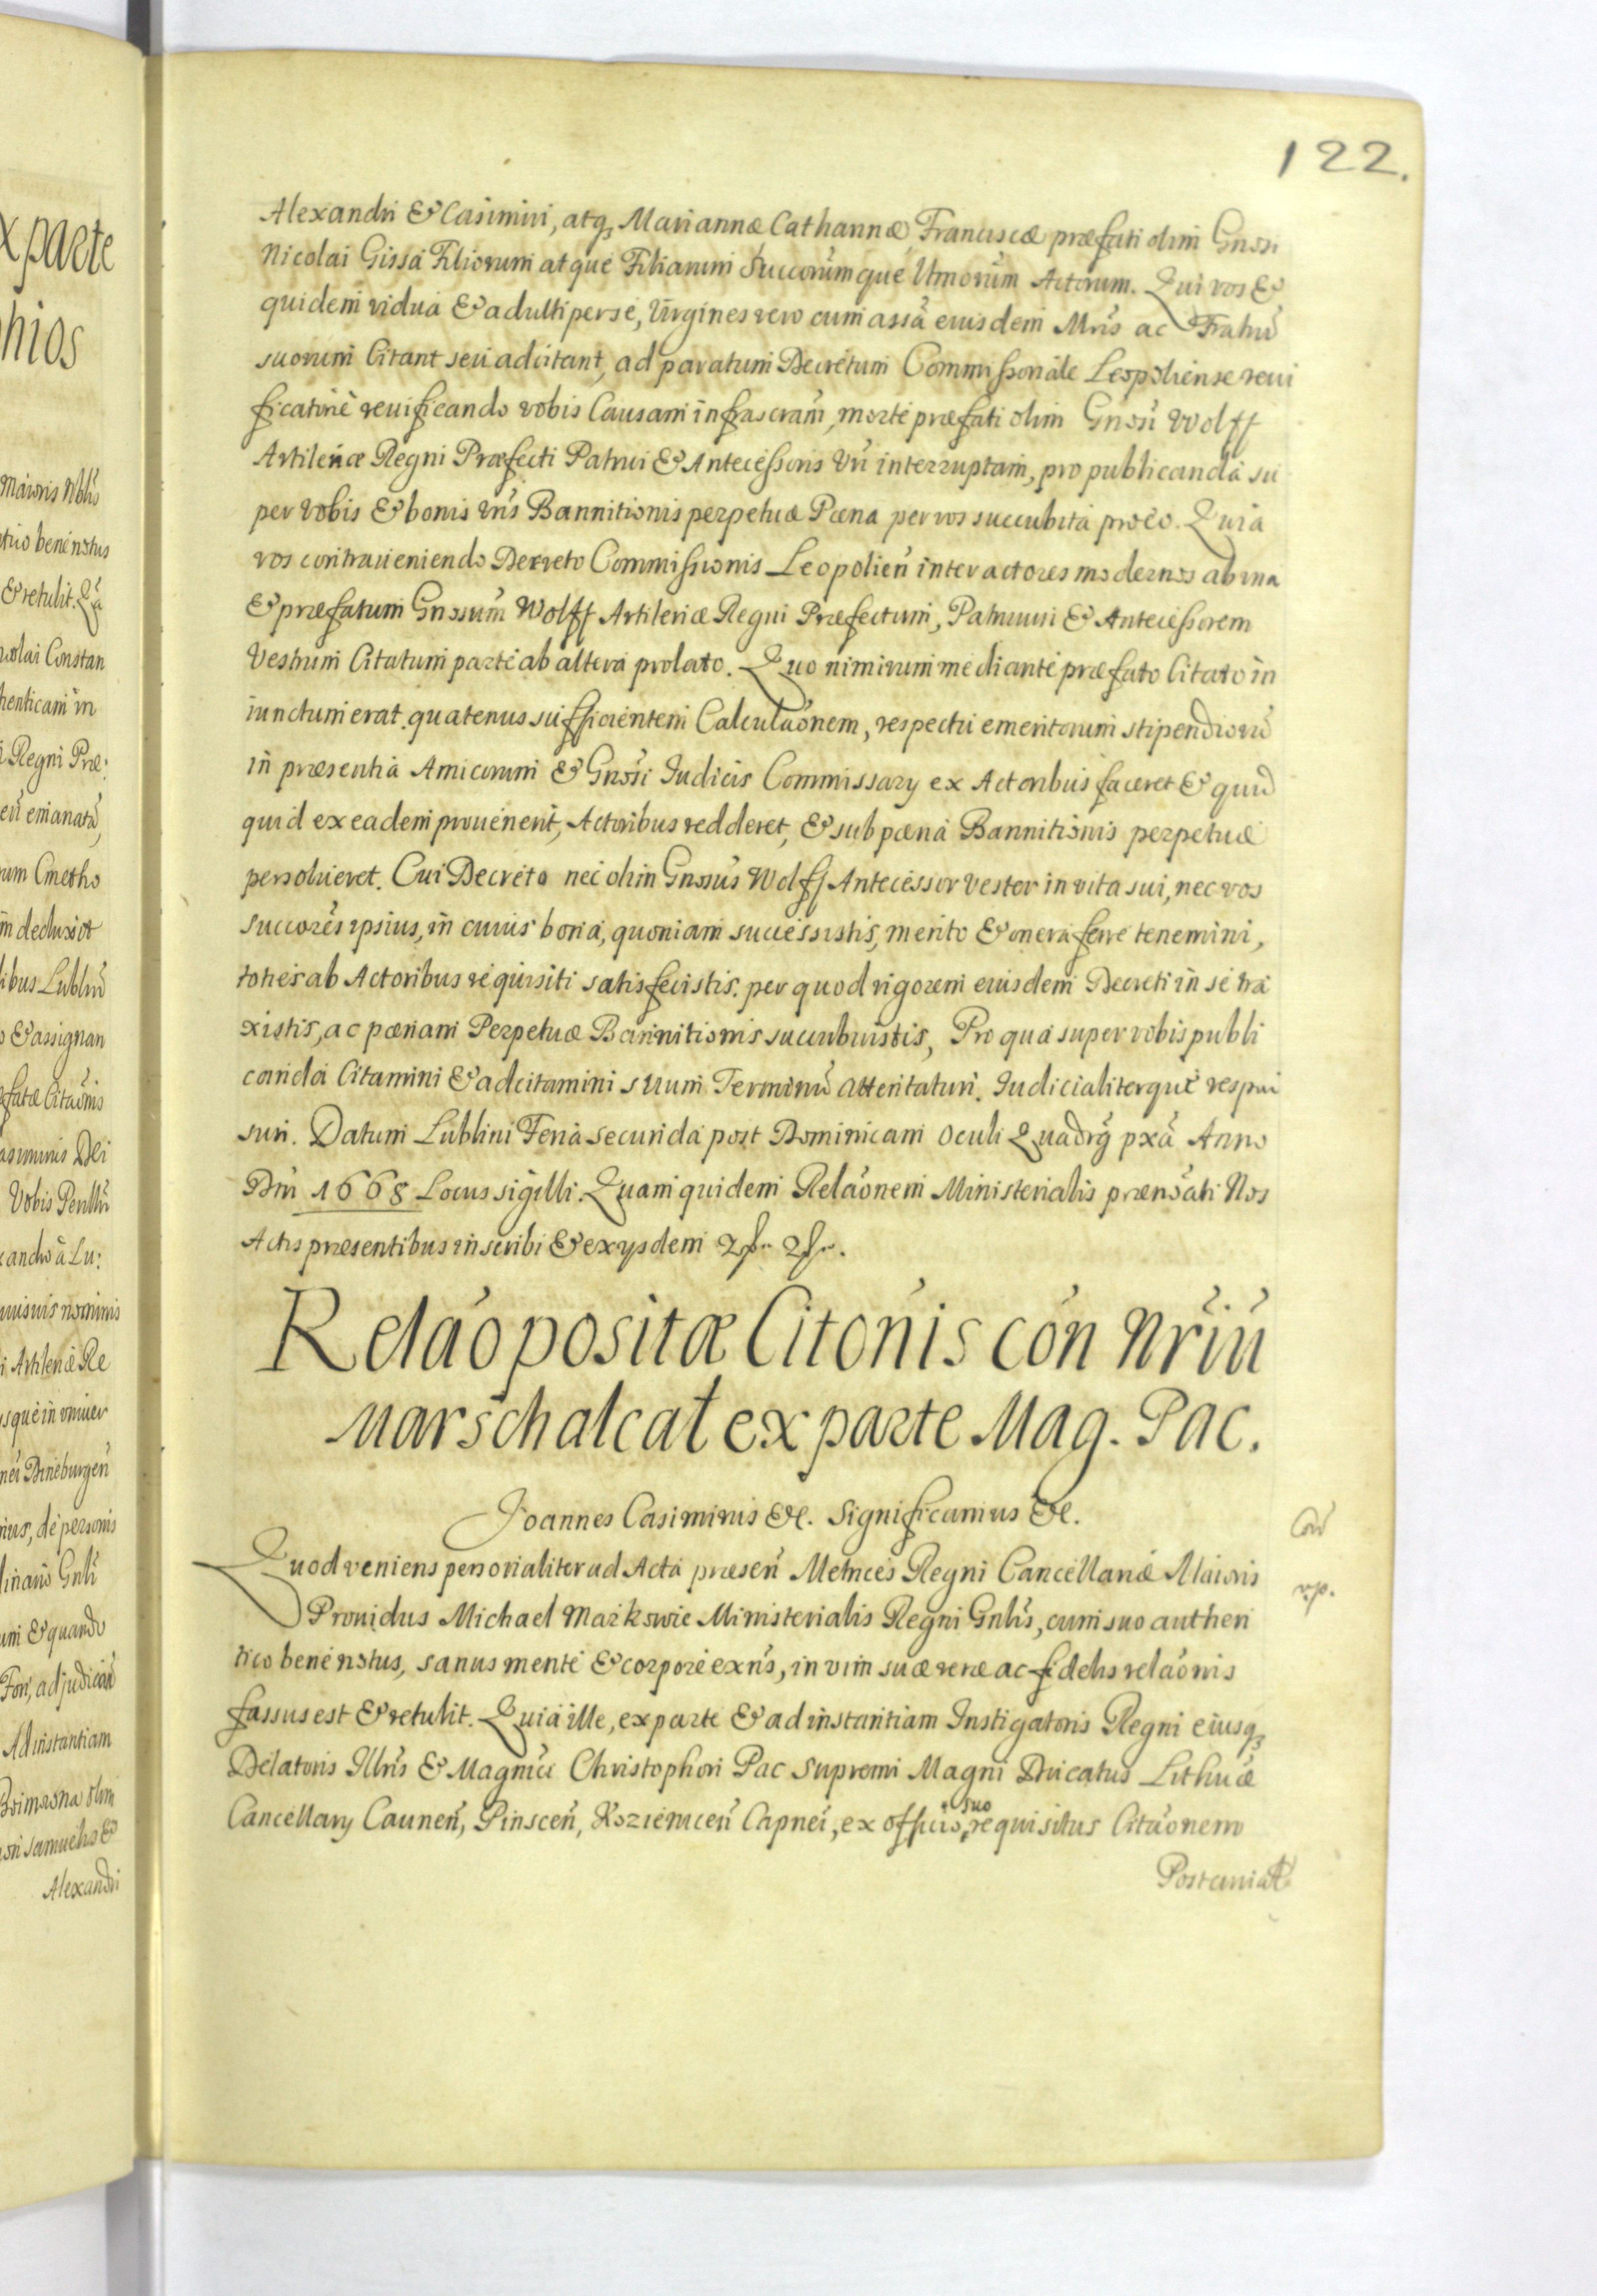 122.
Alexandri & Casimiri, atq, Mariannæ Catharinæ, Franciscæ præfati olim Gnosi
Nicolai Gissa Filiorum atque Filiarum Succorumque Umorum Actorum. Qui vos &
quidem vidua & adulti per se, Virgines vero cum assa eiusdem Mris ac Fratru
suorum Citant seu adcitant, ad paratum Decretum Commissoriale Leopoliense revi
ficatorie revificando vobis Causam infrascram, morte præfati olim Gnosi Wolff
Artileriæ Regni Præfecti Patrui & Antecessoris Vri interruptam, pro publicanda su
per Vobis & bonis vris Bannitionis perpetuæ Pæna per vos succubita proeo. Quia
vos contraveniendo Decreto Commissionis Leopolien inter actores modernos ab una
& præfatum Gnosum Wolff Artileriæ Regni Præfectum, Patruum & Antecessorem
Vestrum Citatum parte ab altera prolato. Quo nimirum mediante præfato Citato in
iunctum erat quatenus sufficientem Calculaonem, respectu emeritorum stipendioru
in præsentia Amicorum & Gnosi Iudicis Commissary ex Actoribus faceret & quid
quid ex eadem provenerit, Actoribus redderet, & sub pæna Bannitionis perpetuæ
persolveret. Cui Decreto nec olim Gnosus Wolff Antecessor Vester in vita sui, nec vos
succores ipsius, in cuius bona, quoniam successistis, merito & onera ferre tenemini,
toties ab Actoribus requisiti satisfecistis. per quod rigorem eiusdem Decreti in se tra
xistis, ac pænam Perpetuæ Bannitionis succubuistis, Pro qua super vobis publi
canda Citamini & adcitamini suum Terminu attentaturi. Iudicialiterque respon
suri. Datum Lublini Feria secunda post Dominicam Oculi Quadrg pxa Anno
Dni 1668 Locus sigilli. Quam quidem Relaonem Ministerialis prænoati Nos
Actis præsentibus inscribi & exysdem
Relao positæ Citonis con Nriu
Marschalcat ex parte Mag. Pac.
Joannes Casimirus &c. Significamus &c.
Quod veniens personaliter ad Acta præsen Metrices Regni Cancellariæ Maioris
Providus Michael Markowic Ministerialis Regni Gnlis, cum suo authen
tico bene notus, sanus mente & corpore exns, in vim suæ veræ ac fidelis relaonis
fassus est & retulit. Quia ille, ex parte & ad instantiam Instigatoris Regni eiusq,
Delatoris Illris & Magnici Christophori Pac Supremi Magni Ducatus Lithuæ
Cancellary Caunen, Pinscen, Kozienicen Capnei, ex officio suo requisitus Citaonem